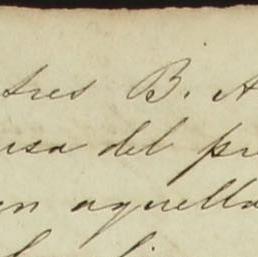 tres B. A
usa del pr
en aquella